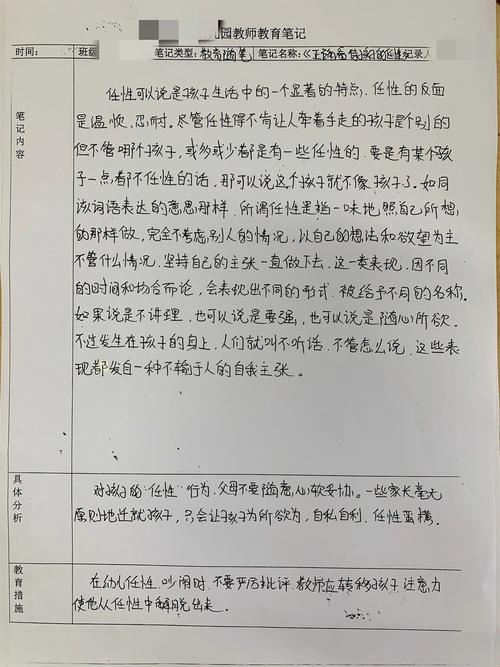 园教师教育笔记
时间: 班级 笔记类型: 教育随笔 笔记名称:《正确看待孩子的任性记录》
笔记内容
任性可以说是孩子生活中的一个显著的特点. 任性的反面
是温顺. 忍耐. 尽管任性得不肯让人牵着手走的孩子是个别的
但不管哪个孩子, 或多或少都是有一些任性的. 要是有某个孩
子一点都不任性的话, 那可以说这个孩子就不像孩子了. 如同
该词语表达的意思那样. 所谓任性是指一味地. 照自己所想,
的那样做, 完全不考虑别人的情况, 以自己的想法和欲望为主
不管什么情况. 坚持自己的主张一直做下去. 这一类表现. 因不同
的时间和场合而论, 会表现出不同的形式. 被给予不同的名称.
如果说是不讲理, 也可以说是要强, 也可以说是随心所欲.
不过发生在孩子的身上, 人们就叫不听话. 不管怎么说, 这些表
现都发自一种不输于人的自我主张.
具体分析
对孩子的“任性”行为. 父母不要随意,心软妥协. 一些家长毫无
原则地迁就孩子, 只会让孩子为所欲为, 自私自利. 任性蛮横.
教育措施
在幼儿任性. 吵闹时. 不要严厉批评. 教师应转移孩子注意力
使他从任性中解脱出来.